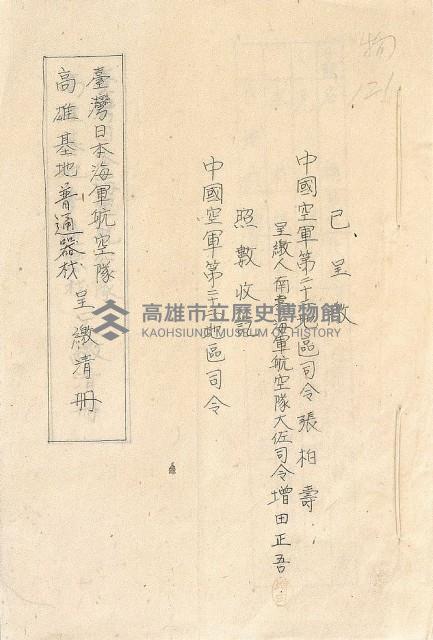 物
121
已呈繳
中國空軍第二十二地區司令張柏壽
呈繳人南臺海軍航空隊大佐司令增田正吾
照數收訖
中國空軍第二十二地區司令
臺灣日本海軍航空隊
高雄基地普通器材
呈繳清冊
高雄市立歷史博物館
KAOHSIUNG MUSEUM OF HISTORY